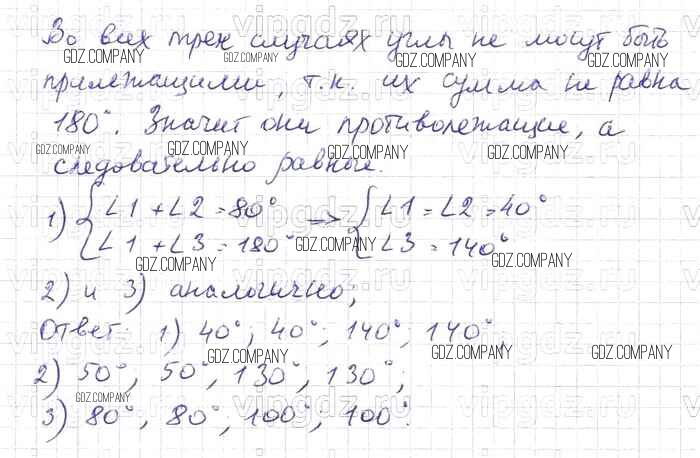 Во всех трех случаях углы не могут быть
прилежащими, т.к. их сумма не равна
180°. Значит они противолежащие, а
следовательно равные.
1) { ∠1 + ∠2 = 80° => { ∠1 = ∠2 = 40°
∠1 + ∠3 = 180° ∠3 = 140°
2) и 3) аналогично;
Ответ: 1) 40°; 40°; 140°; 140°,
2) 50°, 50°, 130°, 130°;
3) 80°, 80°, 100°, 100°.
GDZ.COMPANY
vipgdz.ru